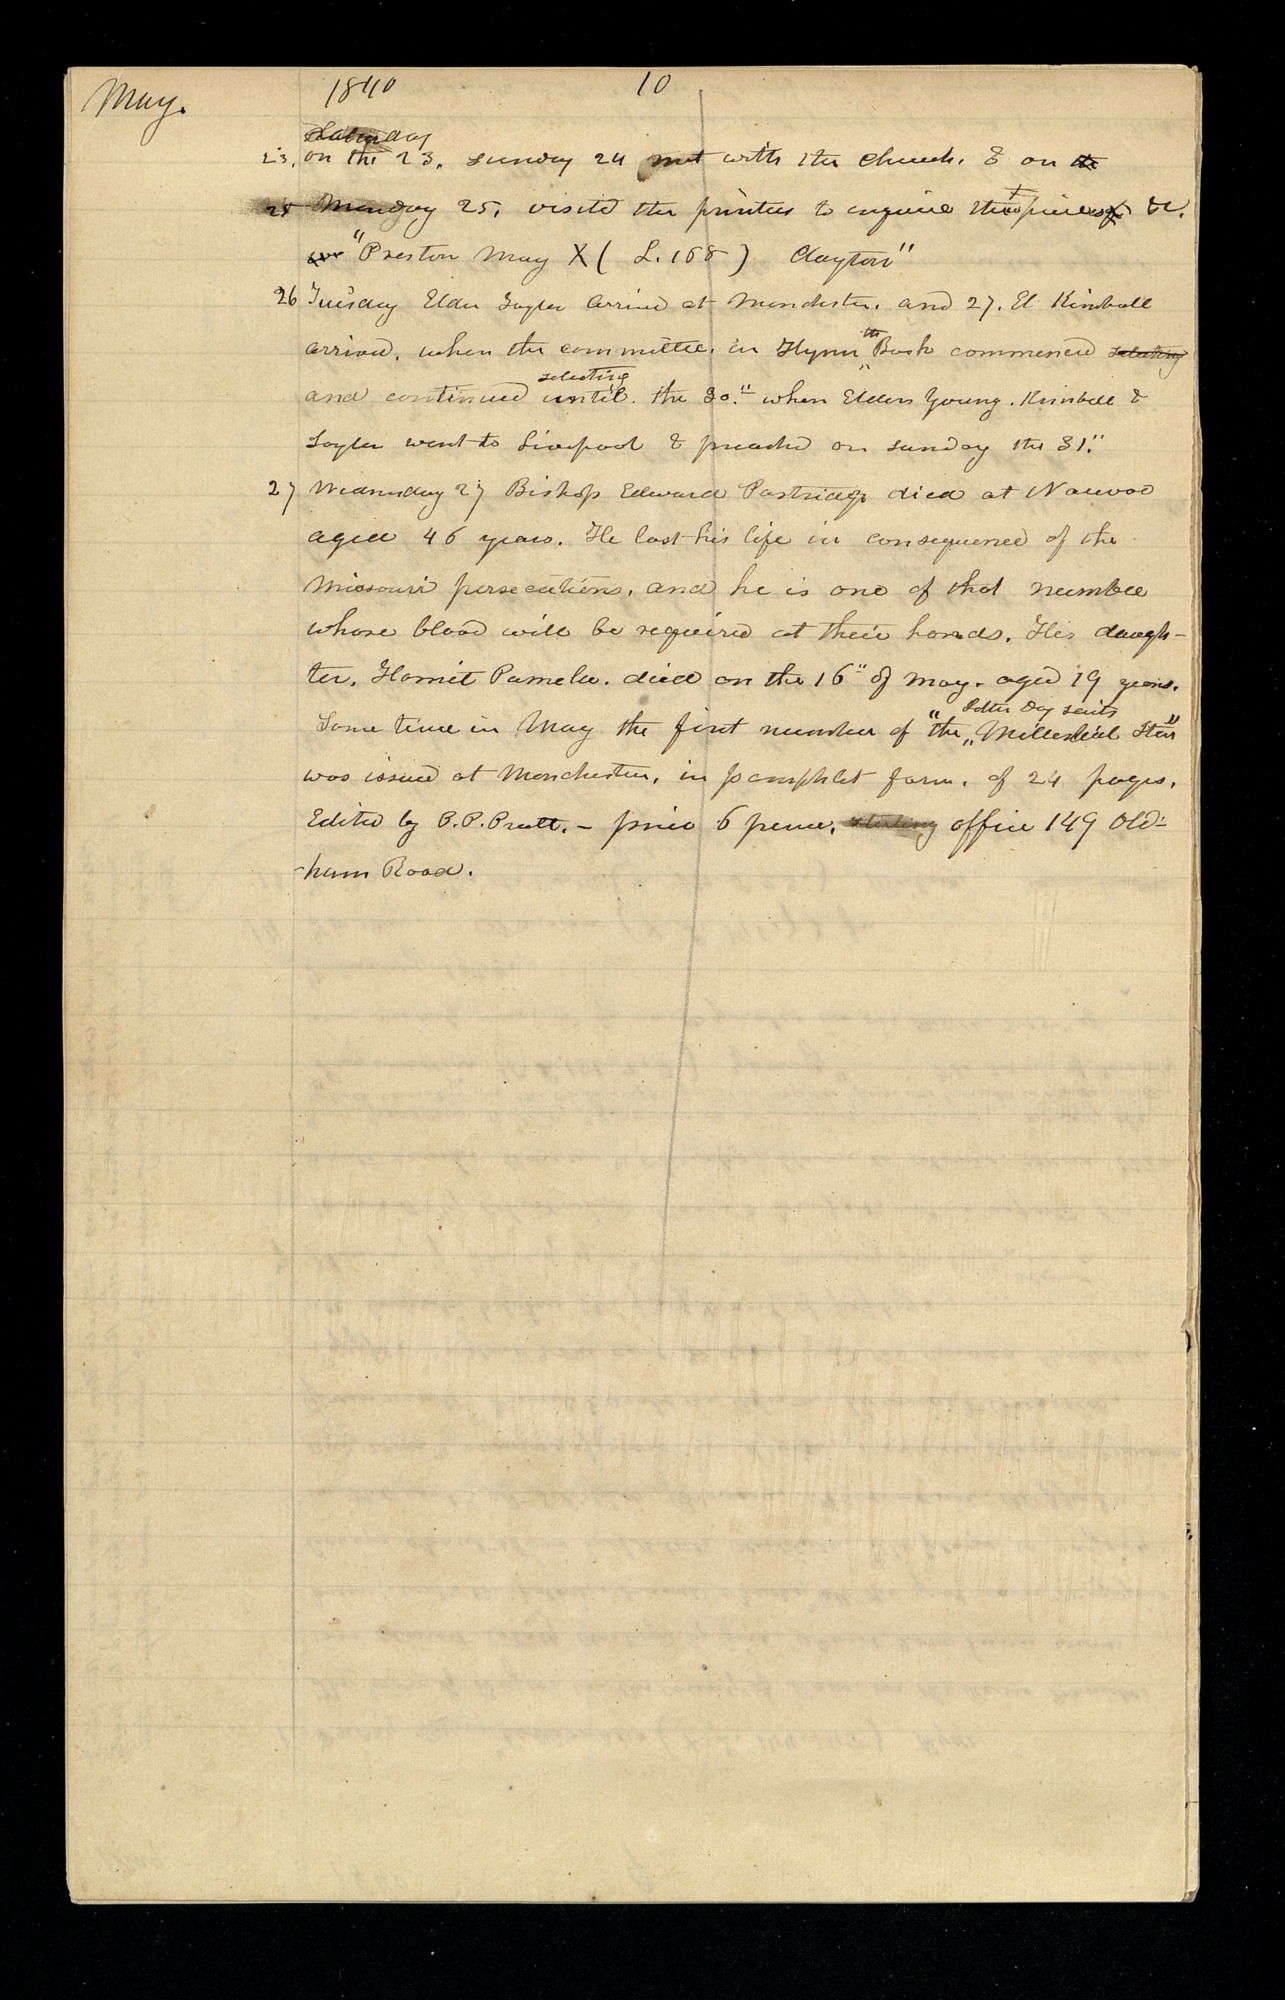 May.
1840
10
Saturday
23, on the 23. sunday 24 met with the church. & on the
25 Monday 25, visited the printers to enquire their prices &c.
"Preston May X ( L. 168 ) Clayton"
26 Tuesday Elder Taylor arrived at Manchester. and 27. El Kimball
arrived, when the committee, on Hymn "the Book commenced selecting
selecting
and continued until. the 30." when Elders Young. Kimball &
Taylor went to Liverpool & preached on sunday the 31."
27 Wednesday 27 Bishop Edward Partridge died at Nauvoo
aged 46 years. He lost his life in consequence of the
Missouri persecutions, and he is one of that number
whose blood will be required at their hands. His daugh-
ter. Harriet Pamela. died on the 16" of May. aged 19 years.
Latter Day saints
Some time in May the first number of "the „Millennial Star"
was issued at Manchester, in pamphlet form. of 24 pages.
Edited by P.P. Pratt. – price 6 pence. sterling office 149 Old-
-ham Road.